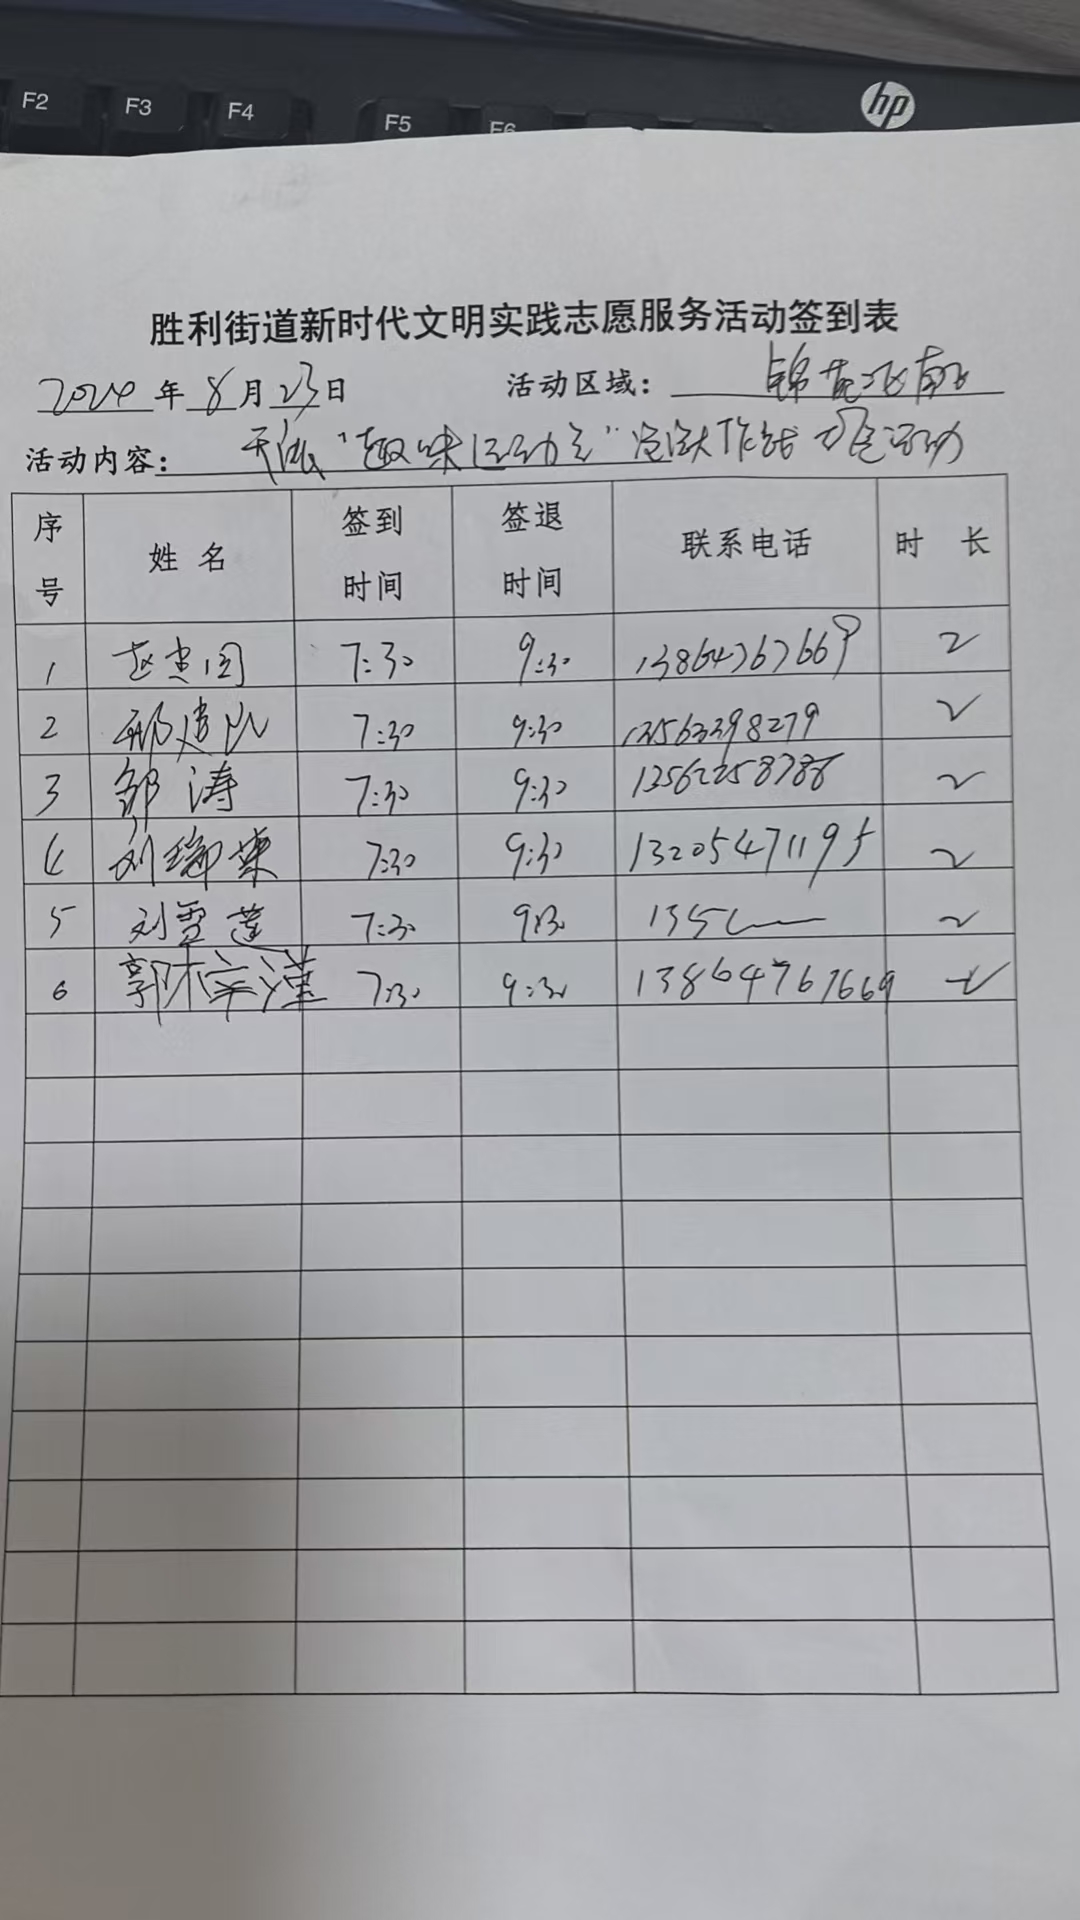 F2 F3 F4 F5 F6 hp
胜利街道新时代文明实践志愿服务活动签到表
2024年8月23日 活动区域：锦苑
活动内容："趣味运动会"活动
序号 姓名 签到时间 签退时间 联系电话 时长
1 7:30 9:30 13864767669 2
2 7:30 9:30 13563398279 2
3 邹涛 7:30 9:30 2
4 刘瑞荣 7:30 9:30 13205471195 2
5 刘雪莲 7:30 9:30 135 2
6 郭 7:30 9:30 13864767669 2